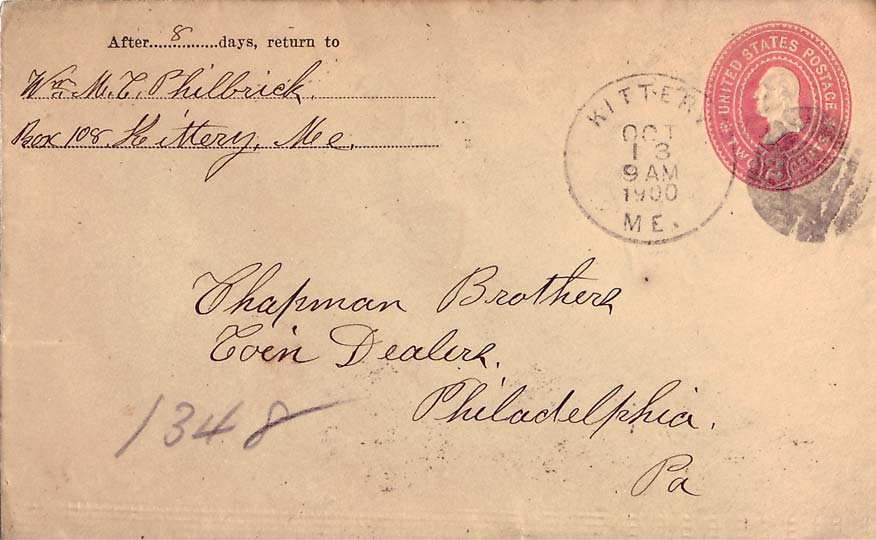 After.....8.......days, return to
Wm. M. C. Philbrick.
Box 108. Kittery, Me.
KITTERY
OCT
13
9 AM
1900
ME.
UNITED STATES POSTAGE
TWO CENTS
2
Chapman Brothers
Coin Dealers.
Philadelphia.
Pa
1348